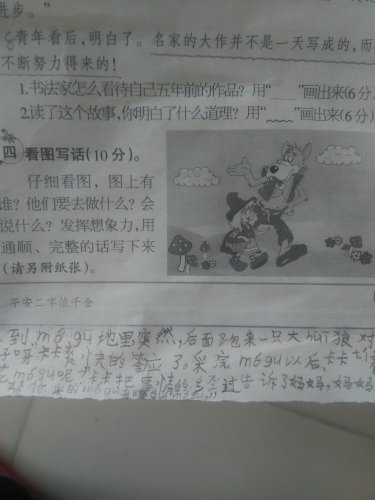 进步。”
8青年看后,明白了。名家的大作并不是一天写成的,而
不断努力得来的!
1.书法家怎么看待自己五年前的作品?用“____”画出来(6分
2.读了这个故事,你明白了什么道理?用“﹏﹏”画出来(6分)
四 看图写话(10分)。
仔细看图,图上有
谁?他们要去做什么?会
说什么?发挥想象力,用
通顺、完整的话写下来
(请另附纸张)。
平安二字值千金
到mógu地里突然,后面跑来一只大hui狼对
卡卡爽快的答应了。采完mógu以后,卡卡
mógu呢”卡卡把事情的告诉了妈妈,妈妈